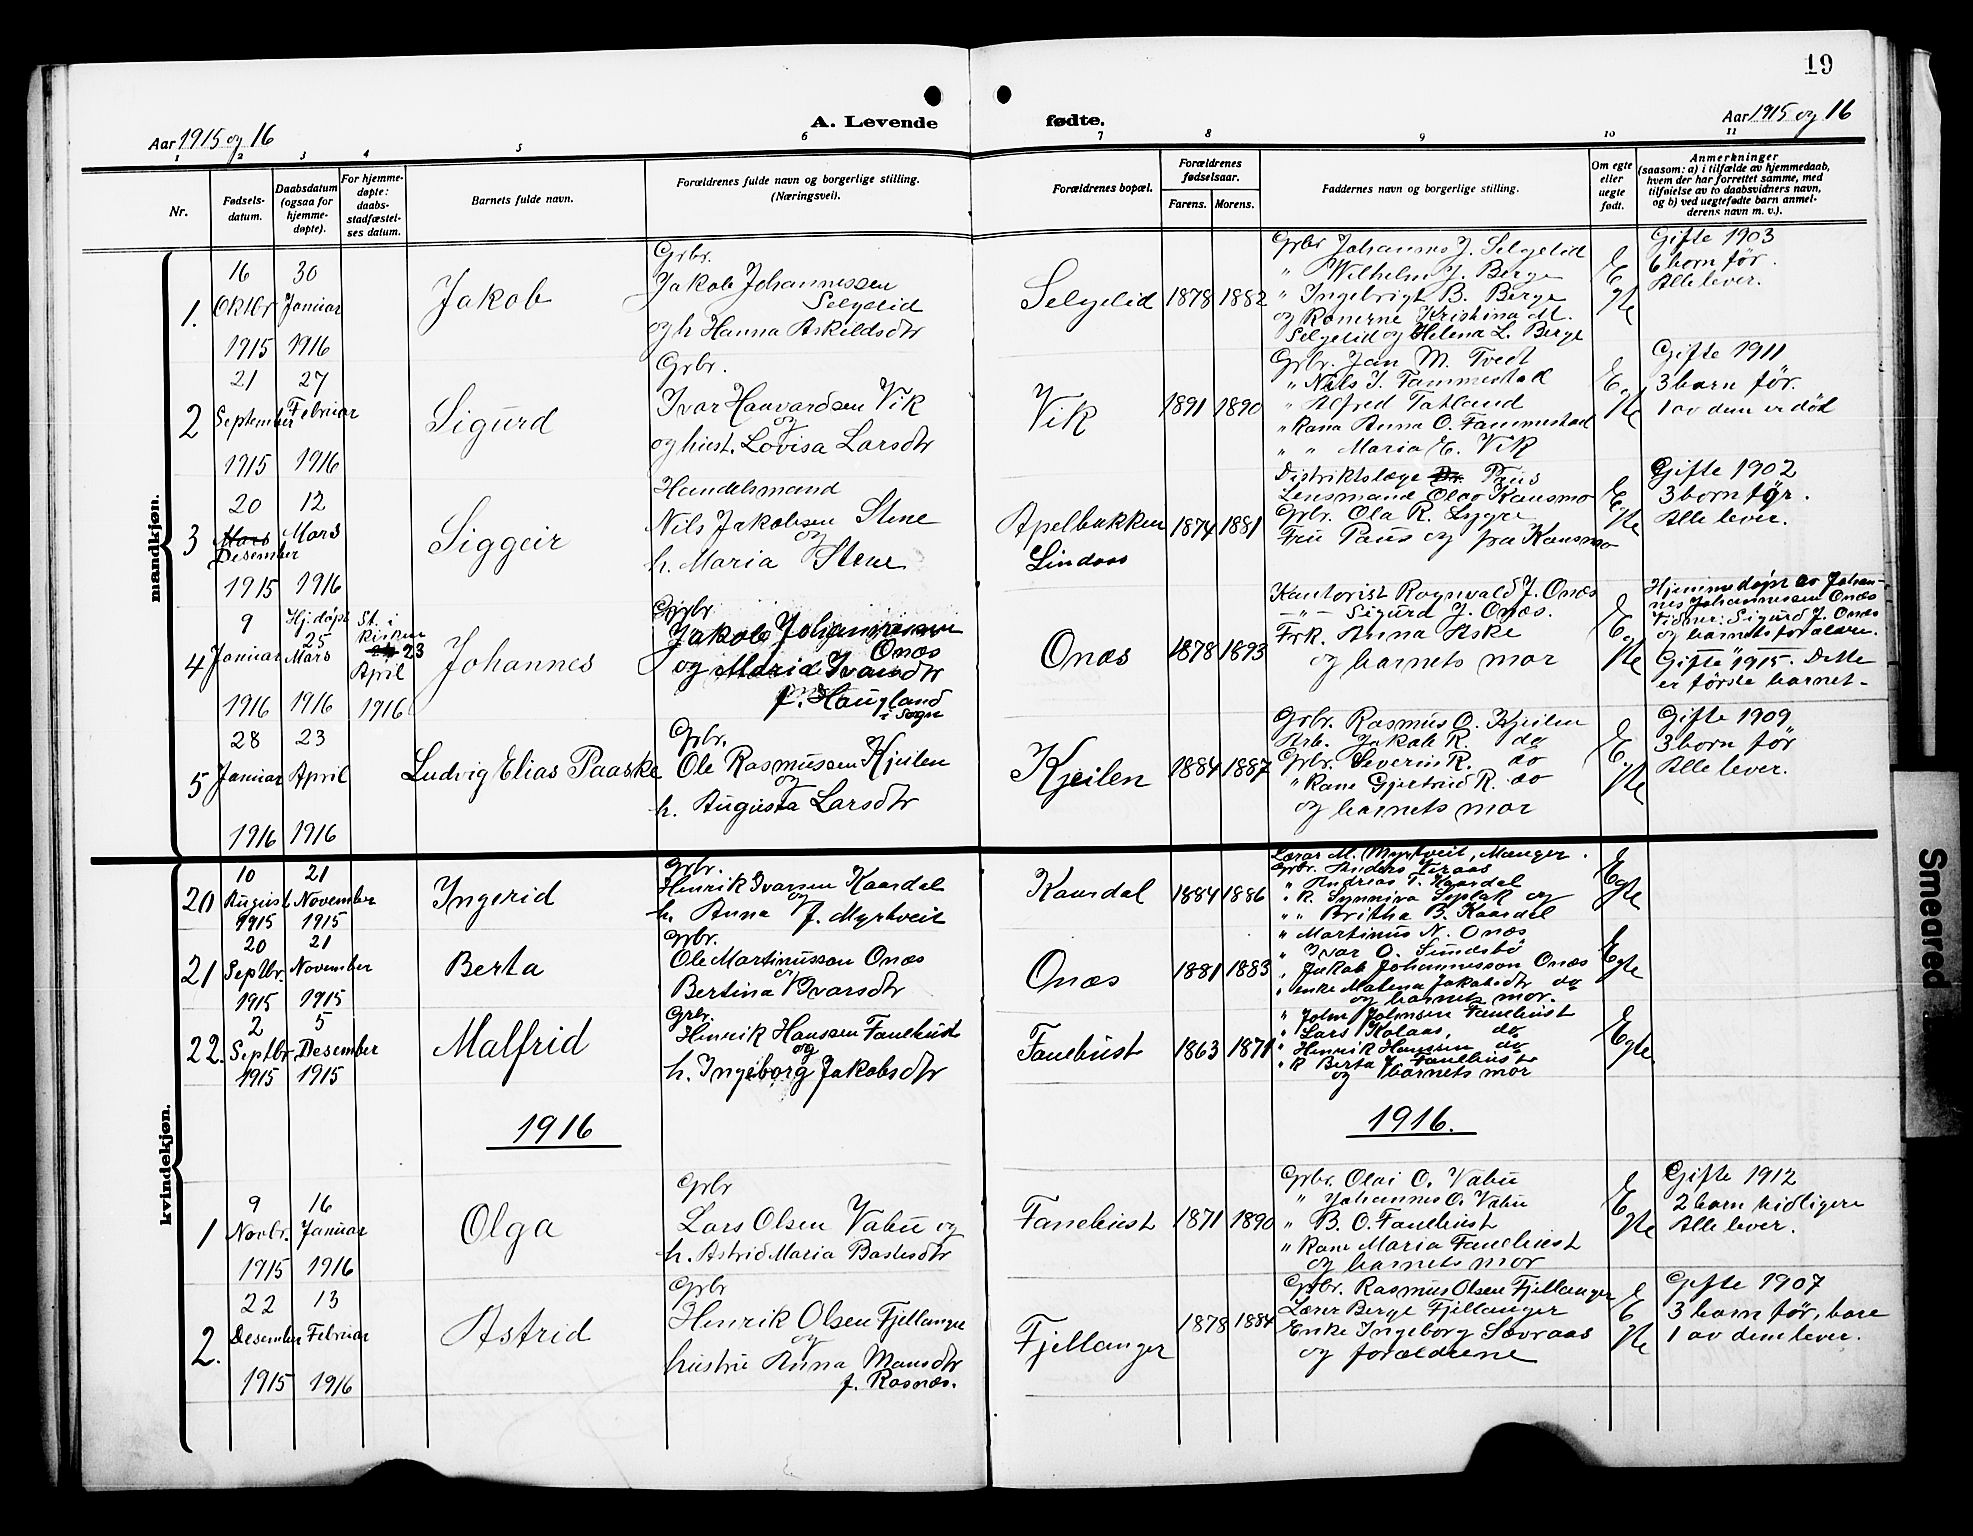 19
Aar 1915 og 16
A. Levende
fødte.
Aar 1915 og 16
1 2 3 4 5 6 7 8 9 10 11
Nr.
Fødsels-
datum.
Daabsdatum
(ogsaa for
hjemme-
døpte).
For hjemme-
døpte:
daabs-
stadfæstel-
ses datum.
Barnets fulde navn.
Forældrenes fulde navn og borgerlige stilling.
(Næringsvei).
Forældrenes bopæl.
Forældrenes
fødselsaar.
Farens. Morens.
Faddernes navn og borgerlige stilling.
Om egte
eller
uegte
født.
Anmerkninger
(saasom: a) i tilfælde av hjemmedaab,
hvem der har forrettet samme, med
tilføielse av to daabsvidners navn,
og b) ved uegtefødte barn anmel-
derens navn m. v.).
mandkjøn.
1.
16
Oktbr
1915
30
Januar
1916
Jakob
Grbr.
Jakob Johannessen
Selgelid
og h. Hanna Askildsdtr
Selgelid
1878
1882
Grbr Johannes J. Selgelid
" Wilhelm J. Berge
" Ingebrigt B. Berge
og Konerne Kristina M.
Selgelid og Helena L. Berge
Egte
Gifte 1903
6 born før.
Alle lever.
2
21
September
1915
27
Februar
1916
Sigurd
Grbr.
Ivar Haavardsen Vik
og
og hust. Lovisa Larsdtr
Vik
1891
1890
Grbr. Jan M. Tvedt
" Nils J. Fammestad
" Alfred Tatland
" Kona Anna O. Fammestad
" " Maria E. Vik
Egte
Gifte 1911
3 born før.
1 av dem er død
3
20
Mars
Desember
1915
12
Mars
1916
Siggeir
Handelsmand
Nils Jakobsen Stene
og
h. Maria Stene
Apelbakken
Lindaas
1874
1881
Distriktslæge Dr. Paus
Lensmand Olav Kausmo
Grbr. Ola R. Lygre
Fru Paus og fru Kausmo
Egte
Gifte 1902
3 born før.
Alle lever.
4
9
Januar
1916
Hj. døpt
25
Mars
1916
St. i
kirken
23
April
1916
Johannes
Grbr
Jakob Johannessen
Onæs
og Maria Ivarsdtr
f. Haugland
i Sogn
Onæs
1878
1893
Kantorist Rognvald J. Onæs
— " — Sigurd J. Onæs.
Frk. Anna Aske
og barnets mor
Egte
Hjemmedøpt av Johan-
nes Johannessen Onæs
Vidner: Sigurd J. Onæs
og barnets forældre.
Gifte 1915. Dette
er første barnet.
5
28
Januar
1916
23
April
1916
Ludvig Elias Paaske
Grbr.
Ole Rasmussen Kjeilen
og
h. Augusta Larsdtr
Kjeilen
1884
1887
Grbr. Rasmus O. Kjeilen
Arb. Jakob R. do
Grbr. Severin R. do
" Kone Gjertrud R. do
og barnets mor
Egte
Gifte 1909
3 born før
Alle lever.
kvindekjøn.
20
10
August
1915
21
November
1915
Ingerid
Grbr.
Henrik Ivarsen Kaardal
og
h. Anna f. Myrtveit
Kaardal
1884
1886
Lærar M. Myrtveit, Manger.
Grbr. Anders Teraas
" Andreas T. Kaardal
" k. Synneva Seplak og
" " Britha B. Kaardal
Egte
21
20
Septbr.
1915
21
November
1915
Berta
Grbr.
Ole Martinussen Onæs
og
Bertina Ivarsdtr
Onæs
1881
1883
" Martinus N. Onæs
" Ivar O. Sundsbø
" Jakob Johannesson Onæs
" enke Malena Jakobsdtr do
og barnets mor.
Egte
22.
2
Septbr.
1915
5
Desember
1915
Malfrid
Grbr.
Henrik Hanssen Fanebust
og
h. Ingeborg Jakobsdtr
Fanebust
1863
1871
" John Johnsen Fanebust
" Lars Kolaas, do
" Henrik Hanssen do
" k Berta J. Fanebust
og barnets mor
Egte
1916
1916.
1
9
Novbr.
1915
16
Januar
1916
Olga
Grbr
Lars Olsen Vabu og
h. Astrid Maria Bastesdtr
Fanebust
1871
1890
Grbr. Olai O. Vabu
" Johannes O. Vabu
" B. O. Fanebust
" Kone Maria Fanebust
og barnets mor
Egte
Gifte 1912
2 barn tidligere
Alle lever.
2.
22
Desember
1915
13
Februar
1916
Astrid
Grbr
Henrik Olsen Fjellanger
og
hustru Anna Monsdtr
f. Rosnæs.
Fjellanger
1878
1884
Grbr. Rasmus Olsen Fjellanger
Lærer Berge Fjellanger
Enke Ingeborg Sævraas
og forældrene
Egte
Gifte 1907
3 barn før, bare
1 av dem lever.
Smeared